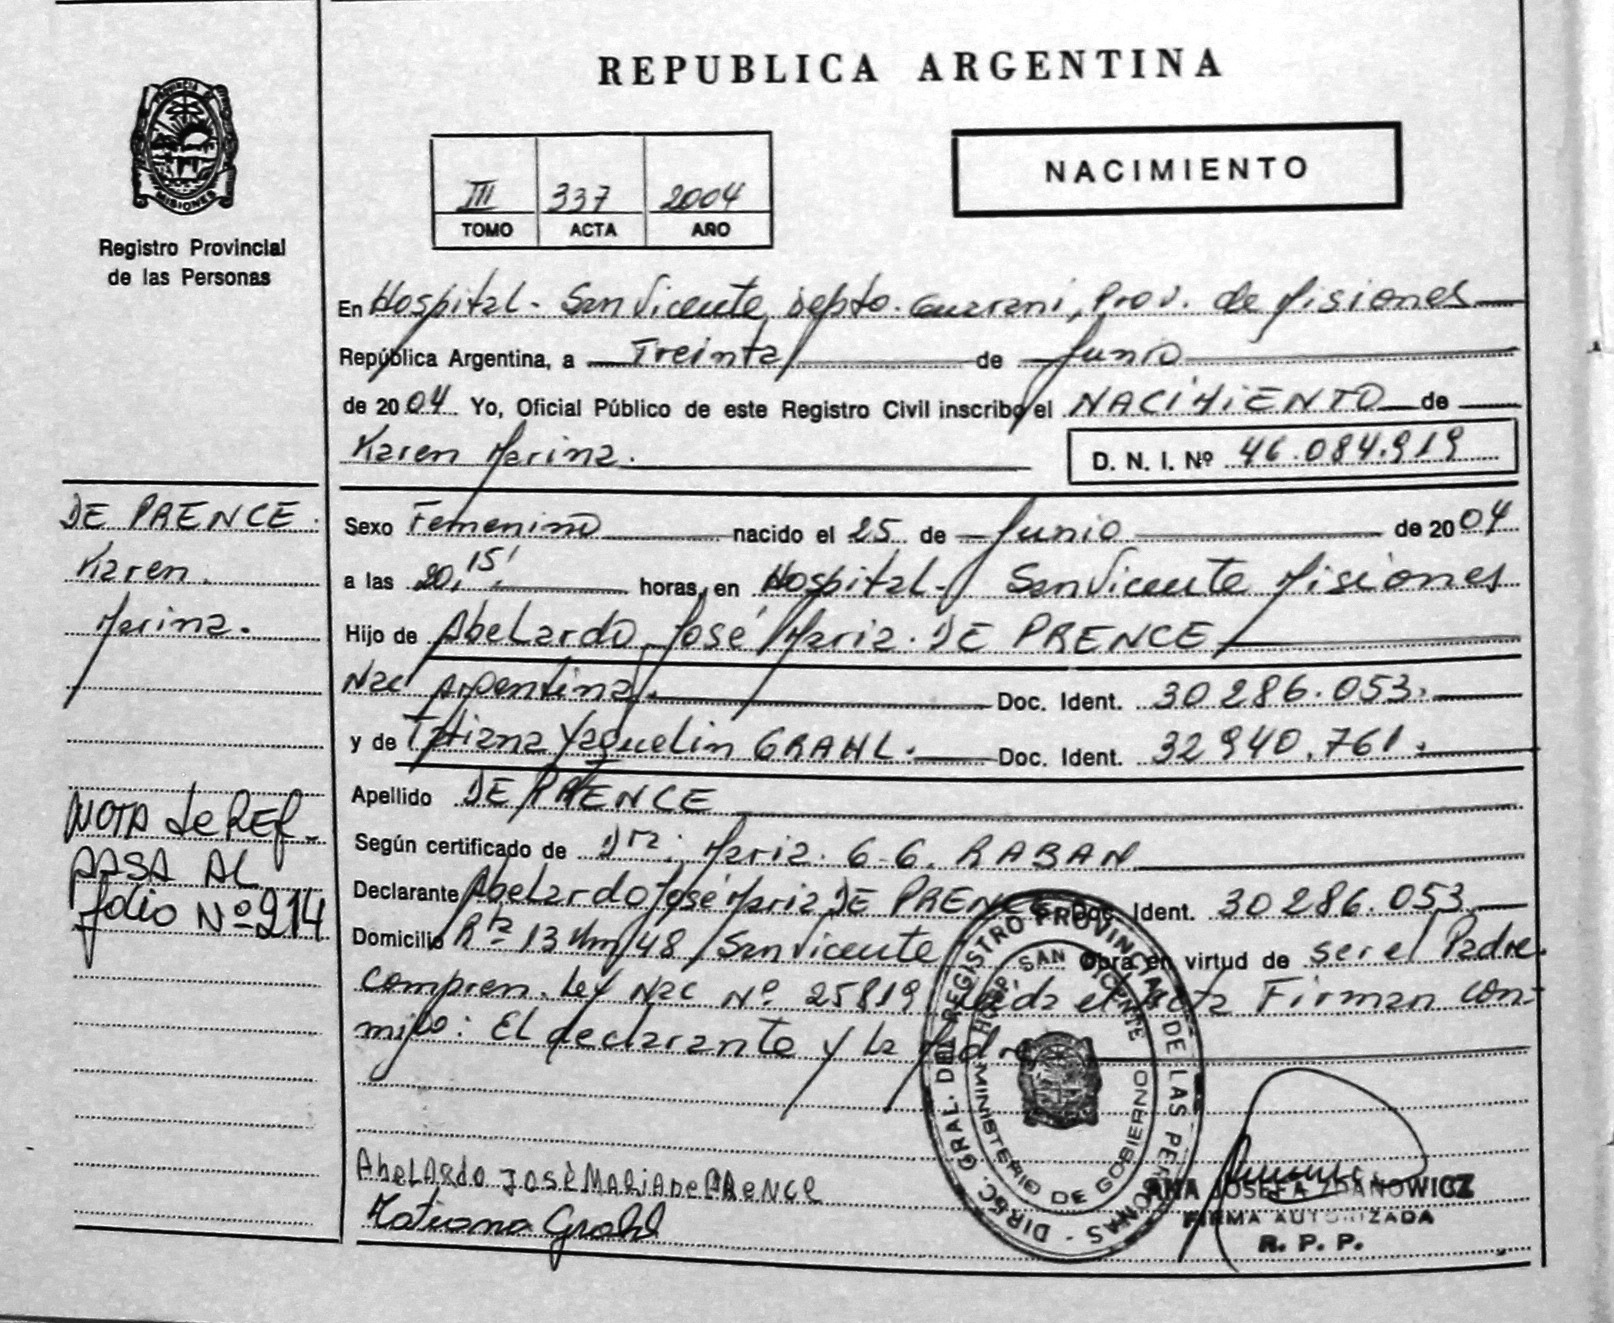 REPUBLICA ARGENTINA
PROVINCIA DE
MISIONES
Registro Provincial
de las Personas
III 337 2004
TOMO ACTA AÑO
NACIMIENTO
En Hospital - San Vicente, Depto. Guarani, Prov. de Misiones
República Argentina, a Treinta de Junio
de 2004 Yo, Oficial Público de este Registro Civil inscribo el NACIMIENTO de
Karen Marina.
D. N. I. Nº 46.084.919
DE PRENCE.
Karen
Marina.
Sexo Femenino nacido el 25 de Junio de 2004
a las 20,15' horas, en Hospital - San Vicente Misiones
Hijo de Abelardo José Maria DE PRENCE
Nac Argentina. Doc. Ident. 30 286.053.
y de Tatiana Yaquelin GRAHL. Doc. Ident. 32 940.761.
Apellido DE PRENCE
Según certificado de Dra. Maria. G. G. RABAN
Declarante Abelardo José Maria DE PRENCE Doc. Ident. 30 286.053
Domicilio Rta 13 Km 48 San Vicente Obra en virtud de ser el Padre
compren. Ley Nac Nº 25819 Leida el Acta Firman con-
migo: El declarante y la Madre
NOTA de REF.
PASA AL
folio Nº 214
AbeLArdo JOSé MARiA De PReNCe
Tatiana Grahl
DIREC. GRAL. DEL REGISTRO PROVINCIAL DE LAS PERSONAS -
HOSP SAN VICENTE
MINISTERIO DE GOBIERNO
ANA JOSEFA ZDANOWICZ
FIRMA AUTORIZADA
R. P. P.